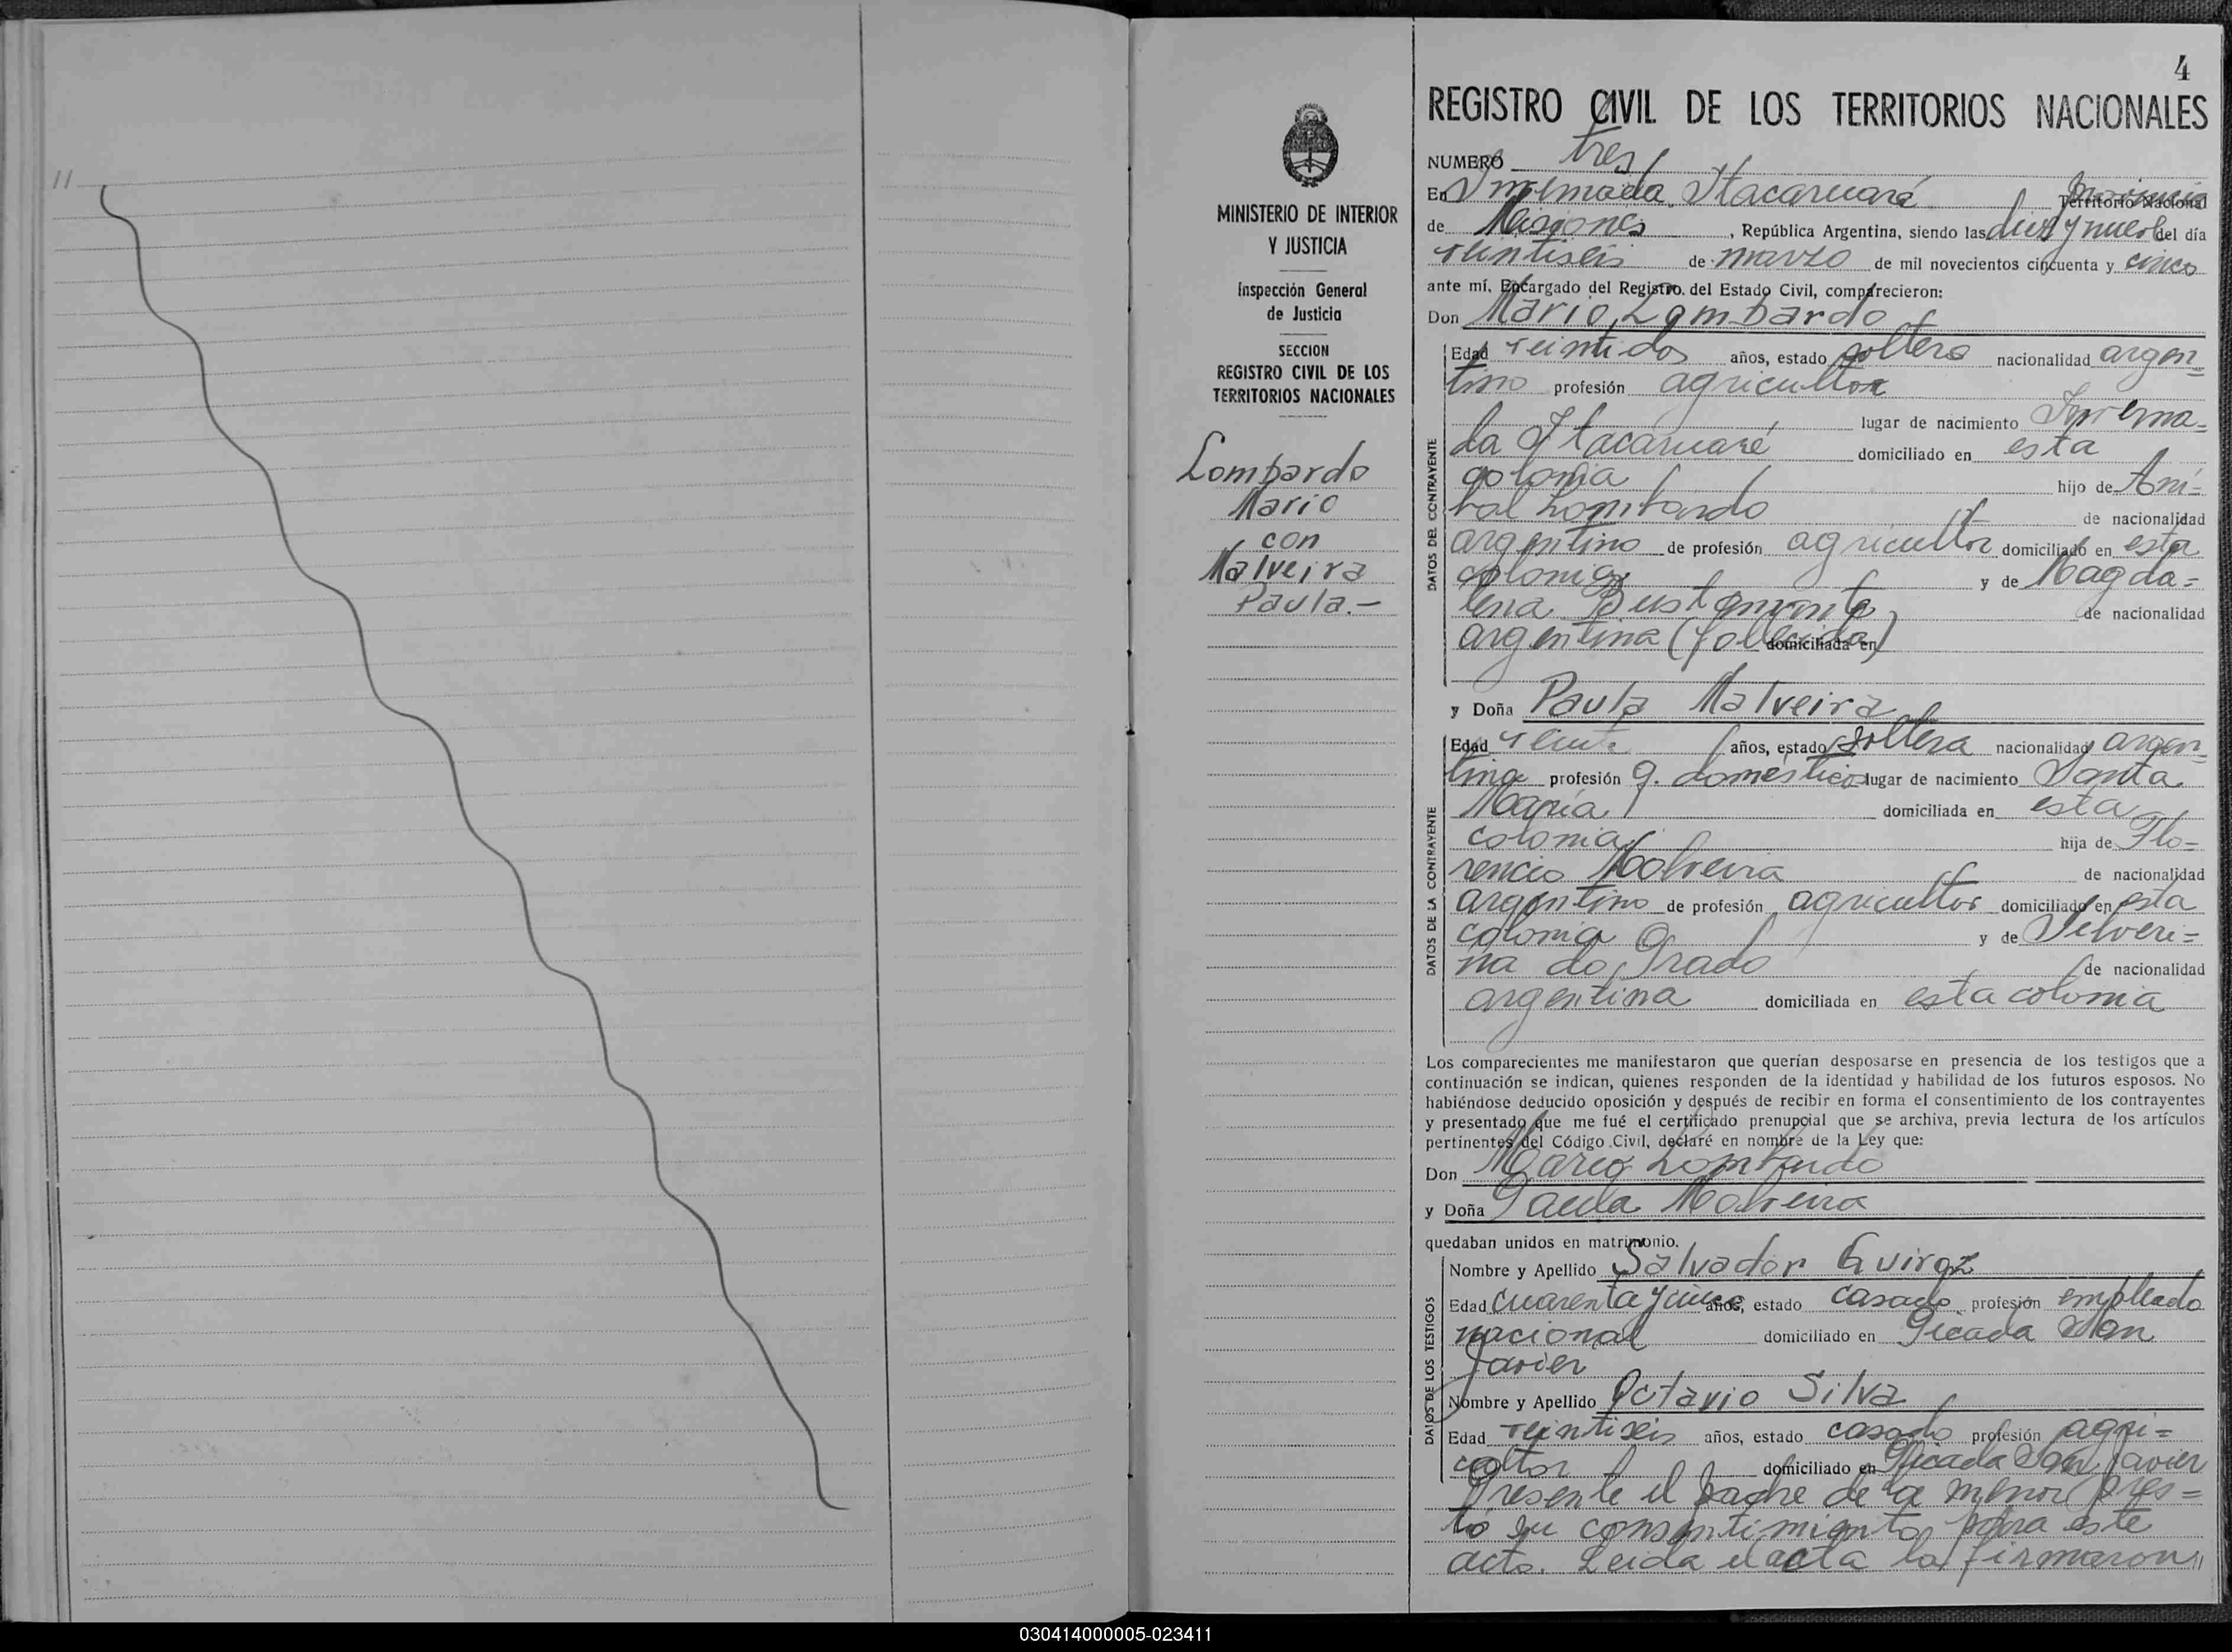 11
4
REGISTRO CIVIL DE LOS TERRITORIOS NACIONALES
MINISTERIO DE INTERIOR
Y JUSTICIA
Inspección General
de Justicia
SECCION
REGISTRO CIVIL DE LOS
TERRITORIOS NACIONALES
Lombardo
Mario
con
Malveira
Paula.-
NUMERO tres
En Invernada Itacaruaré Provincia Territorio Nacional
de Misiones, República Argentina, siendo las diez y nueve del día
veintiseis de marzo de mil novecientos cincuenta y cinco
ante mí, Encargado del Registro del Estado Civil, comparecieron:
Don Mario Lombardo
DATOS DEL CONTRAYENTE
Edad veintidos años, estado soltero nacionalidad argen-
tino profesión agricultor
lugar de nacimiento Inverna-
da Itacaruaré domiciliado en esta
colonia hijo de Aní-
bal Lombardo de nacionalidad
argentino de profesión agricultor domiciliado en esta
colonia y de Magda-
lena Bustamante de nacionalidad
argentina (fallecida) domiciliada en
y Doña Paula Malveira
DATOS DE LA CONTRAYENTE
Edad veinte años, estado soltera nacionalidad argen-
tina profesión q. domésticos lugar de nacimiento Santa
María domiciliada en esta
colonia hija de Flo-
rencio Malveira de nacionalidad
argentino de profesión agricultor domiciliado en esta
colonia y de Silveri-
na do Prado de nacionalidad
argentina domiciliada en esta colonia
Los comparecientes me manifestaron que querían desposarse en presencia de los testigos que a
continuación se indican, quienes responden de la identidad y habilidad de los futuros esposos. No
habiéndose deducido oposición y después de recibir en forma el consentimiento de los contrayentes
y presentado que me fué el certificado prenupcial que se archiva, previa lectura de los artículos
pertinentes del Código Civil, declaré en nombre de la Ley que:
Don Mario Lombardo
y Doña Paula Malveira
quedaban unidos en matrimonio.
DATOS DE LOS TESTIGOS
Nombre y Apellido Salvador Quiroz
Edad cuarenta y cinco años, estado casado profesión empleado
nacional domiciliado en Picada San
Javier
Nombre y Apellido Octavio Silva
Edad veintiseis años, estado casado profesión agri-
cultor domiciliado en Picada San Javier
Presente el padre de la menor pres-
tó su consentimiento para este
acto. Leida el acta la firmaron //
030414000005-023411